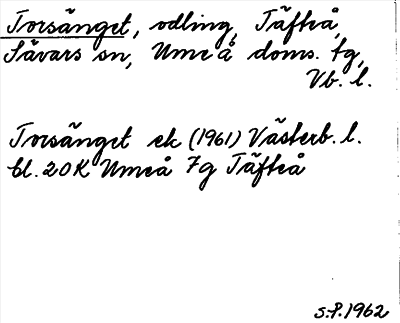 Torsänget, odling, Täfteå,
Sävars sn, Umeå doms. tg,
Vb. l.
Torsänget ek (1961) Västerb. l.
bl. 20K Umeå 7g Täfteå
S.P. 1962